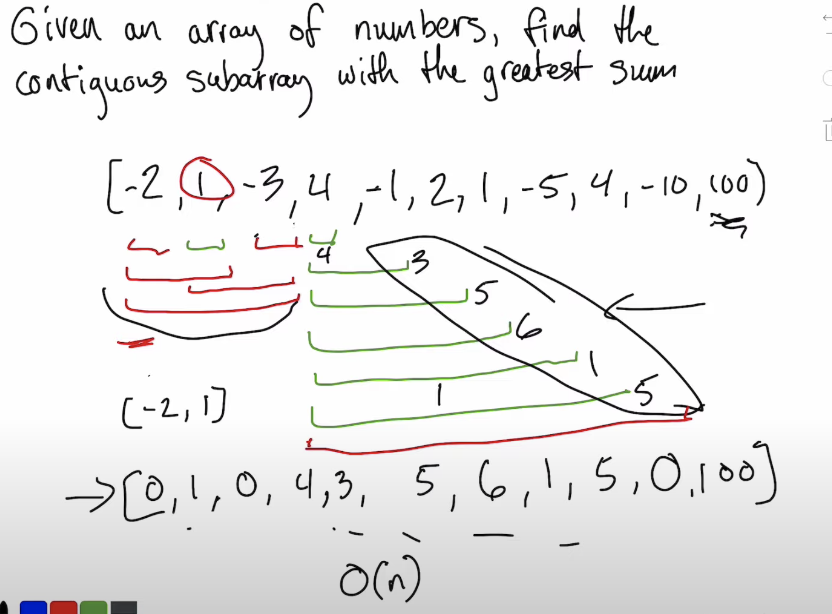 Given an array of numbers, find the
contiguous subarray with the greatest sum
[-2, 1, -3, 4, -1, 2, 1, -5, 4, -10, 100]
4
3
5
6
1
1
5
[-2, 1]
→ [0, 1, 0, 4, 3, 5, 6, 1, 5, 0, 100]
O(n)